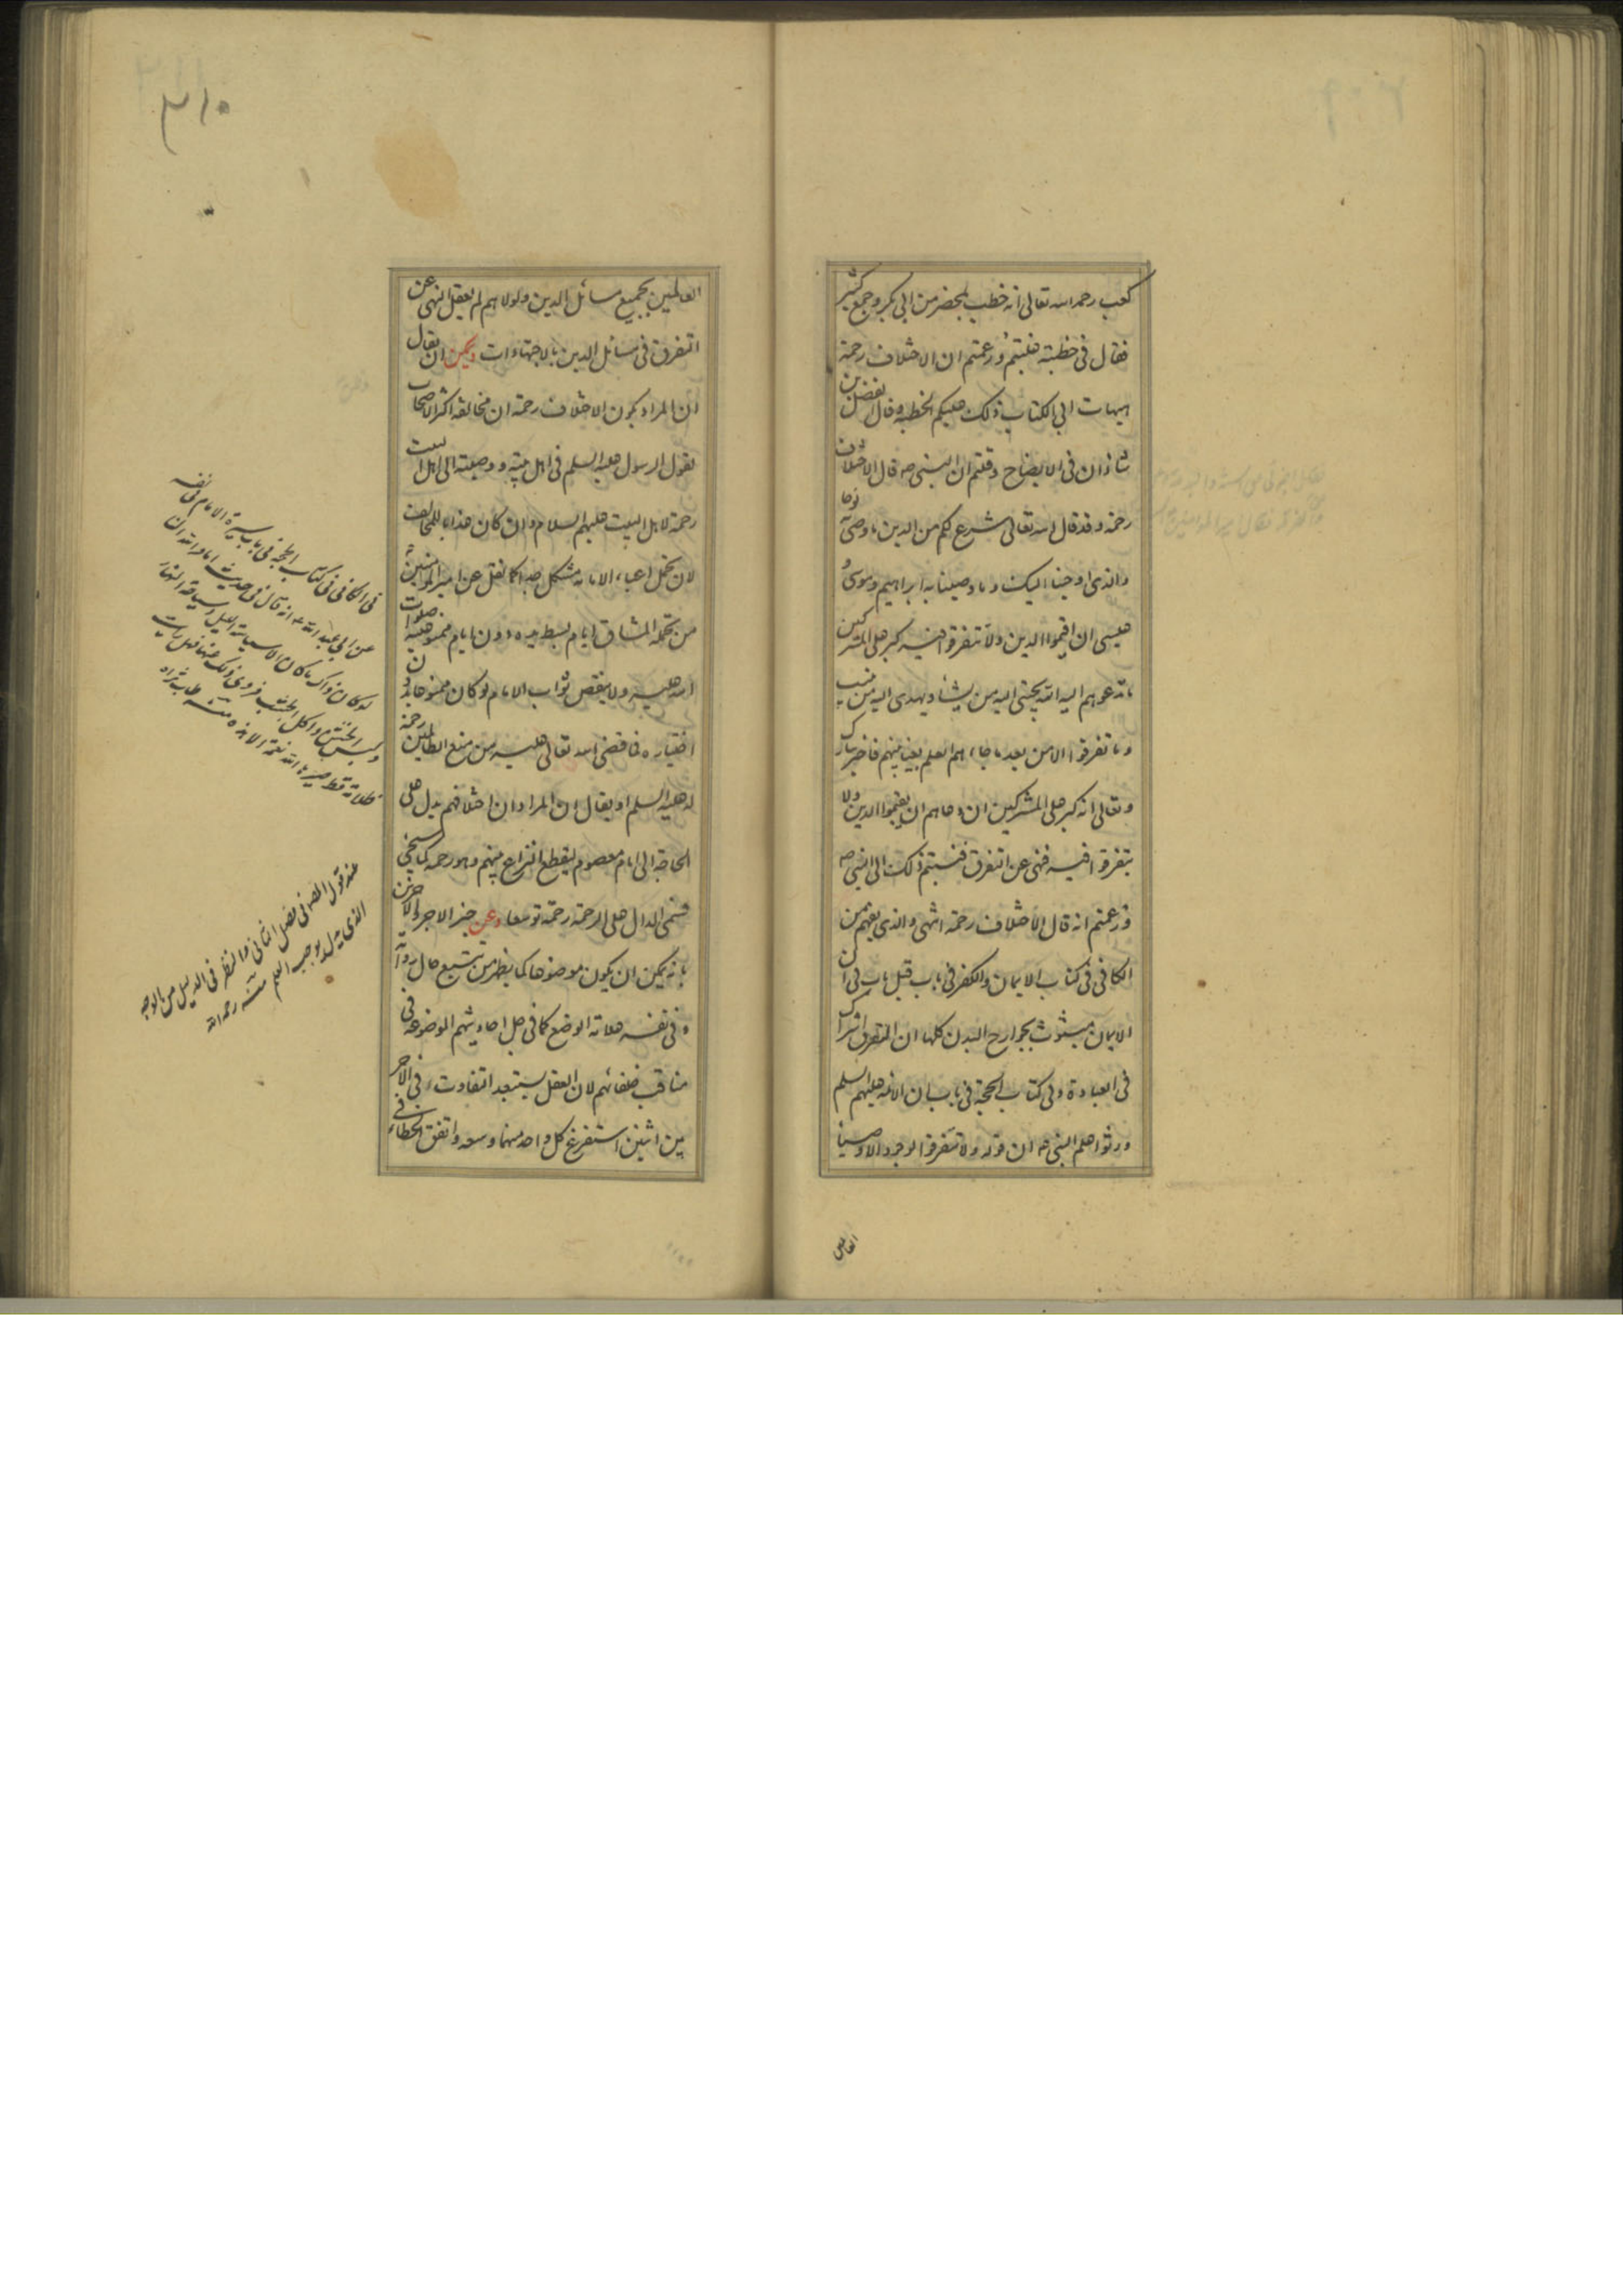 كعب رحمه الله تعالى انه خطب بمحضر من ابي بكر وجمع كثير
فقال في خطبته فنبتم وزعمتم ان الاختلاف رحمة
هيهات ابى الكتاب ذلك عليكم الخطبة وقال الفضل بن
شاذان في الايضاح وقلتم ان النبي ص قال الاختلاف
رحمة وقد قال الله تعالى شرع لكم من الدين ما وصى به نوحا
والذي اوحينا اليك وما وصينا به ابراهيم وموسى و
عيسى ان اقيموا الدين ولا تتفرقوا فيه كبر على المشركين
ما تدعوهم اليه الله يجتبي اليه من يشاء ويهدي اليه من ينيب
وما تفرقوا الا من بعد ما جاءهم العلم بغيا بينهم فاخبر تبارك
وتعالى انه كبر على المشركين ان دعاهم ان يقيموا الدين ولا
يتفرقوا فيه فنهى عن التفرق فنسبتم ذلك الى النبي ص
وزعمتم انه قال الاختلاف رحمة انتهى والذي يفهم من
الكافي في كتاب الايمان والكفر في باب قبل باب في ان
الايمان مبثوث بجوارح البدن كلها ان التفرق اشراك
في العبادة وفي كتاب الحجة في باب ان الائمة عليهم السلم
ورثوا علم النبي ص ان قوله ولا تتفرقوا لوجود الاوصياء
العالمين
العالمين بجميع مسائل الدين ولولاهم لم يعقل النهي عن
التفرق في مسائل الدين بالاجتهادات ويمكن ان يقال
ان المراد بكون الاختلاف رحمة ان مخالفة اكثر الاصحاب
لقول الرسول عليه السلم في اهل بيته ووصيته الى اهل البيت
رحمة لاهل البيت عليهم السلام وان كان عذابا للمخالفين
لان تحمل اعباء الامامة مشكل جدا كما نقل عن امير المؤمنين
من تحمله المشاق ايام بسط يده دون ايام ممنوعيته صلوات
الله عليه ولا ينقص ثواب الامام لو كان ممنوعا بدون
اختياره فما قضى الله تعالى عليه من منع الظالمين رحمة
له عليه السلم او يقال ان المراد ان اختلافهم يدل على
الحاجة الى امام معصوم ليقطع النزاع بينهم وهو رحمة كما سيجئ
فسمى الدال على الرحمة رحمة توسعا وعن خبر الاجر والاجرين
بانه يمكن ان يكون موضوعا كما يظهر من تتبع حال رواته
وفي نفسه علامة الوضع كما في جل احاديثهم الموضوعة في
مناقب خلفائهم لان العقل يستبعد التفاوت في الاجر
بين اثنين استفرغ كل واحد منهما وسعه واتفق الخطاء في
في الكافي في كتاب الحجة في باب سيرة الامام في نفسه
عن ابي عبد الله ع انه قال في حديث اما والله ان
لو كان ذاك ما كان الا سياسة الليل وسياحة النهار
ولبس الخشن واكل الجشب فزوي ذلك عنا فهل رايت
ظلامة قط صيرها الله نعمة الا هذه منه طاب ثراه
عند قول المص في الفصل الثاني والنظر في الدليل من الوجه
الذي يدل يوجب العلم منه رحمه الله
٣١٠